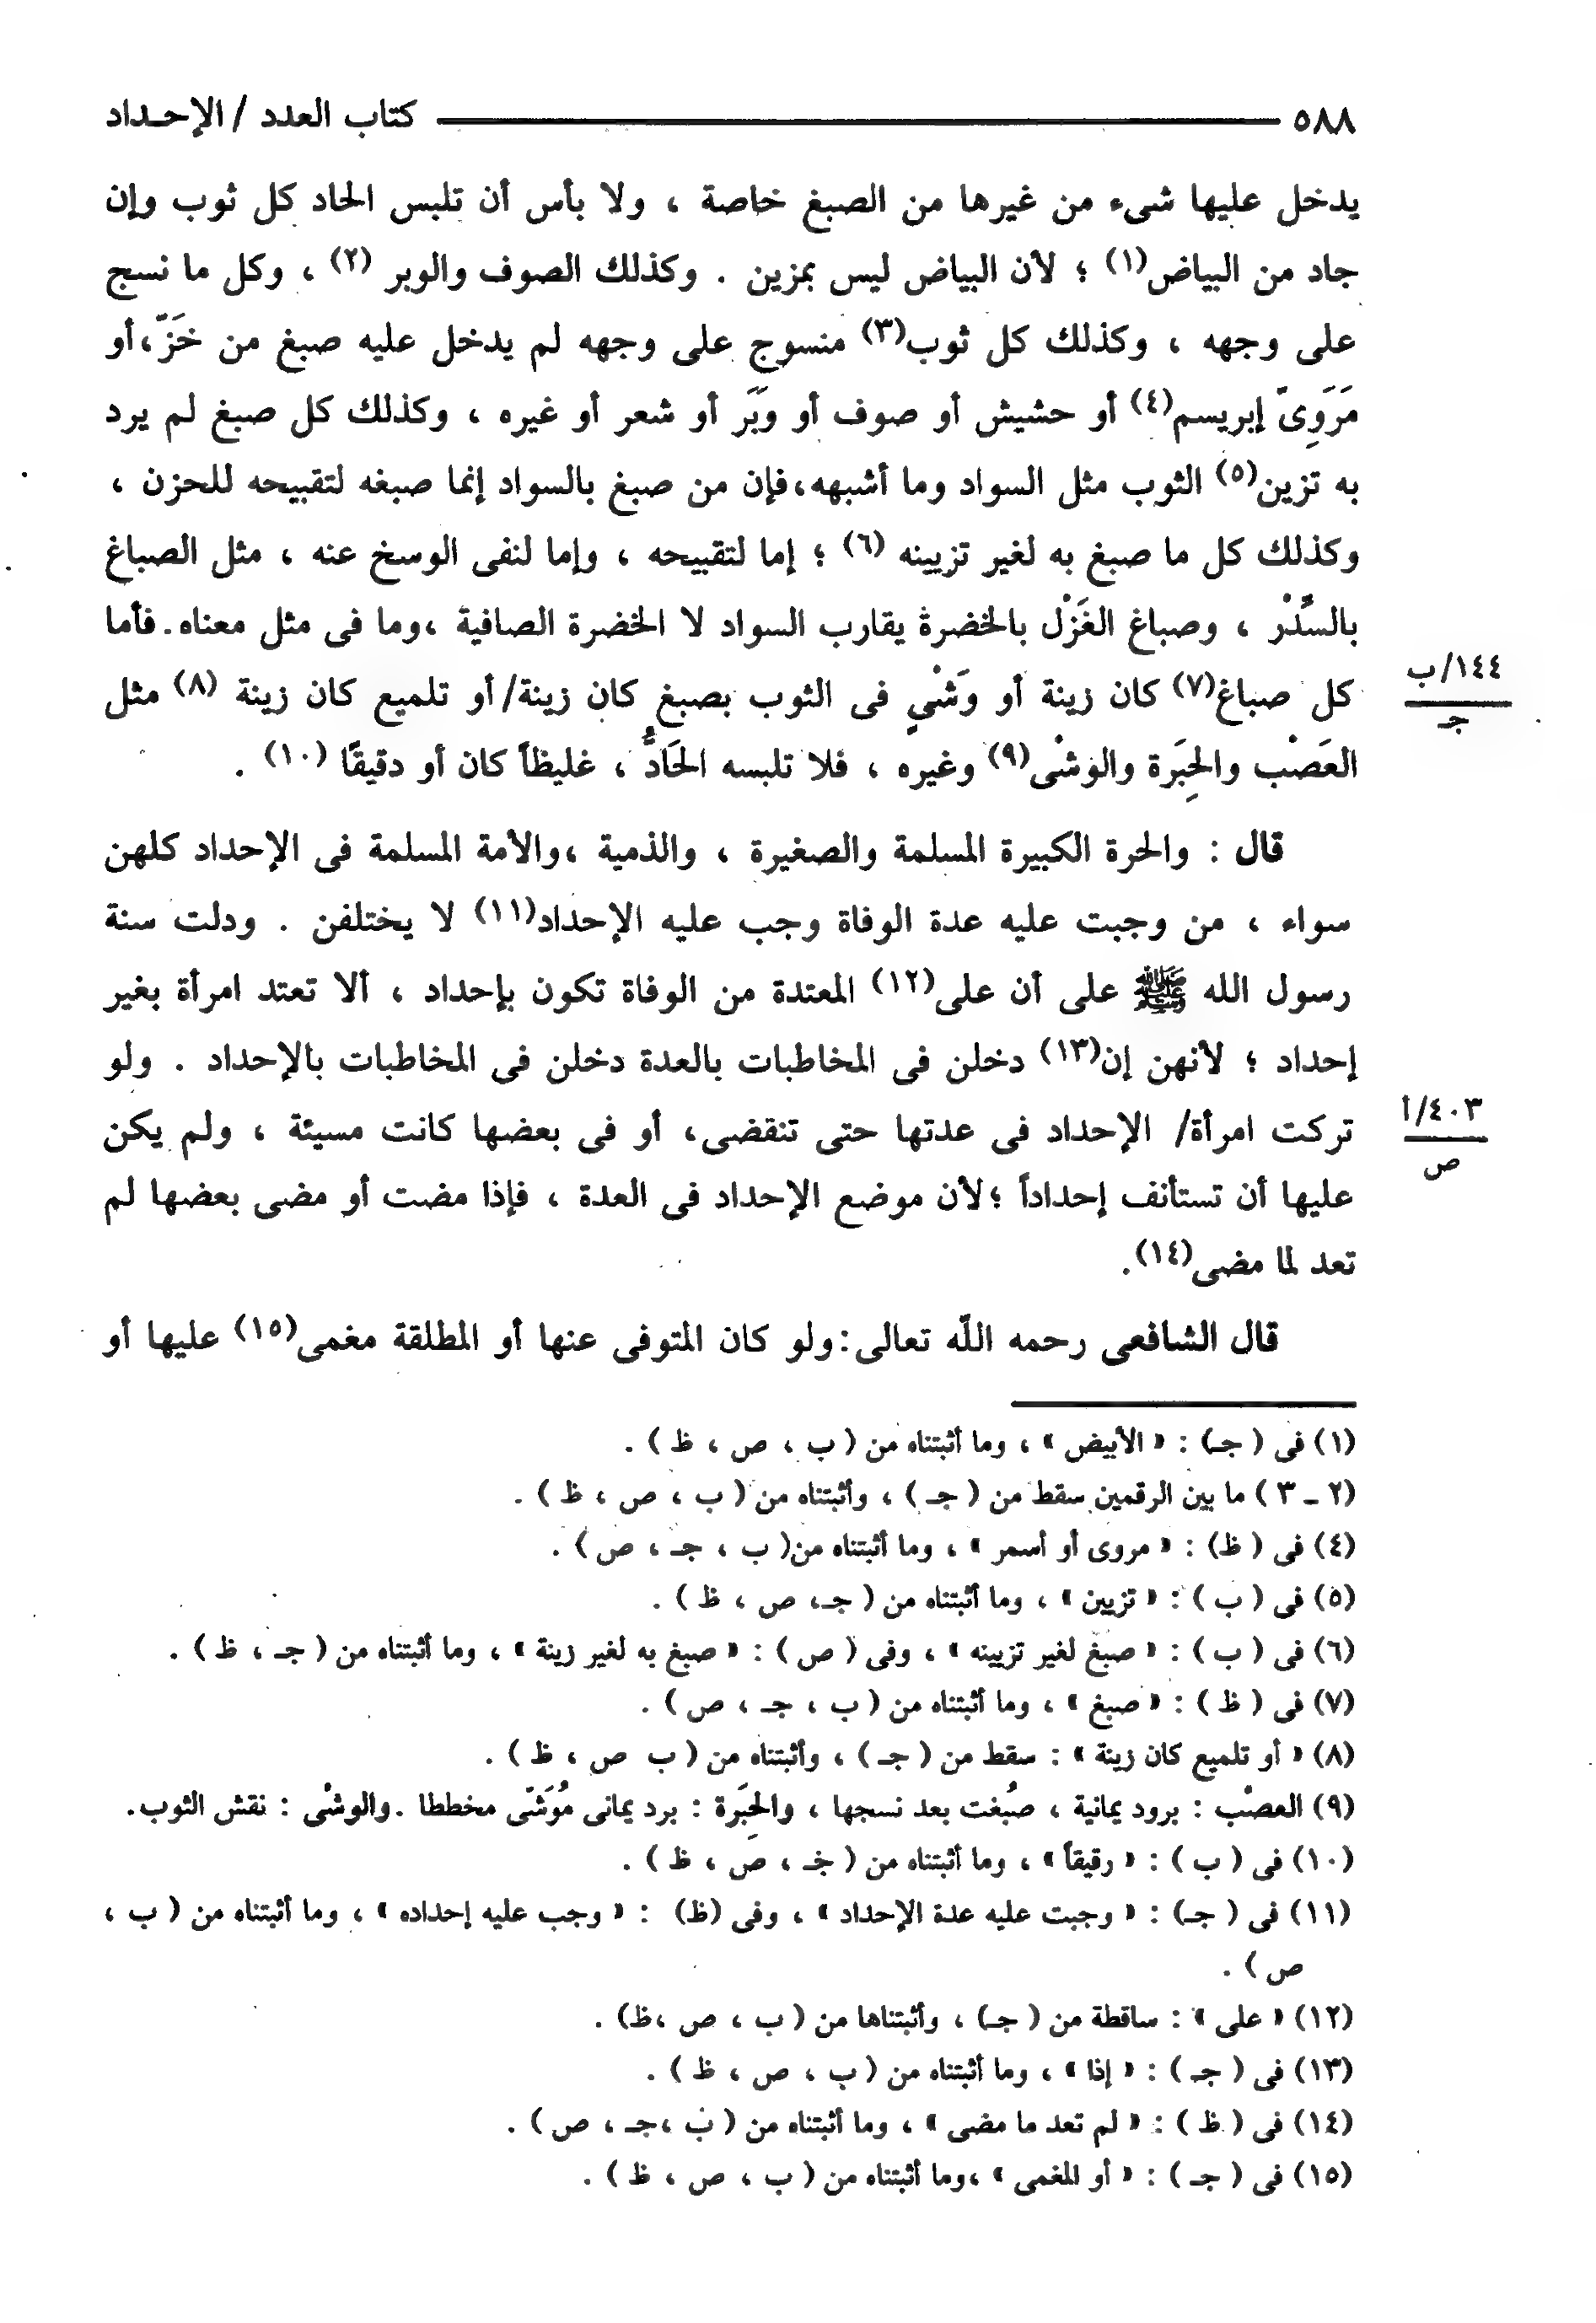 ٥٨٨ كتاب العدد / الإحـداد
يدخل عليها شىء من غيرها من الصبغ خاصة ، ولا بأس أن تلبس الحاد كل ثوب وإن
جاد من البياض(١) ؛ لأن البياض ليس بمزين . وكذلك الصوف والوبر (٢) ، وكل ما نسج
على وجهه ، وكذلك كل ثوب(٣) منسوج على وجهه لم يدخل عليه صبغ من خَزّ،أو
مَرَوِىّ إبريسم(٤) أو حشيش أو صوف أو وَبَر أو شعر أو غيره ، وكذلك كل صبغ لم يرد
به تزين(٥) الثوب مثل السواد وما أشبهه،فإن من صبغ بالسواد إنما صبغه لتقبيحه للحزن ،
وكذلك كل ما صبغ به لغير تزيينه (٦) ؛ إما لتقبيحه ، وإما لنفى الوسخ عنه ، مثل الصباغ
بالسِّدْر ، وصباغ الغَزْل بالخضرة يقارب السواد لا الخضرة الصافية ،وما فى مثل معناه. فأما
كل صباغ(٧) كان زينة أو وَشْىٍ فى الثوب بصبغ كان زينة/ أو تلميع كان زينة (٨) مثل
١٤٤/ب
جـ
العَصْب والحِبَرة والوشْى(٩) وغيره ، فلا تلبسه الحَادُّ ، غليظاً كان أو دقيقًا (١٠) .
قال : والحرة الكبيرة المسلمة والصغيرة ، والذمية ،والأمة المسلمة فى الإحداد كلهن
سواء ، من وجبت عليه عدة الوفاة وجب عليه الإحداد(١١) لا يختلفن . ودلت سنة
رسول الله ﷺ على أن على(١٢) المعتدة من الوفاة تكون بإحداد ، ألا تعتد امرأة بغير
إحداد ؛ لأنهن إن(١٣) دخلن فى المخاطبات بالعدة دخلن فى المخاطبات بالإحداد . ولو
تركت امرأة/ الإحداد فى عدتها حتى تنقضى، أو فى بعضها كانت مسيئة ، ولم يكن
٤٠٣/أ
ص
عليها أن تستأنف إحداداً ؛لأن موضع الإحداد فى العدة ، فإذا مضت أو مضى بعضها لم
تعد لما مضى(١٤).
قال الشافعى رحمه اللّه تعالى:ولو كان المتوفى عنها أو المطلقة مغمى(١٥) عليها أو
(١) فى ( جـ) : « الأبيض » ، وما أثبتناه من ( ب ، ص ، ظ ) .
(٢ ـ ٣ ) ما بين الرقمين سقط من ( جـ ) ، وأثبتناه من ( ب ، ص ، ظ ) .
(٤) فى ( ظ) : « مروى أو أسمر » ، وما أثبتناه من( ب ، جـ ، ص ) .
(٥) فى ( ب ) : « تزيين » ، وما أثبتناه من ( جـ، ص ، ظ ) .
(٦) فى ( ب ) : « صبغ لغير تزيينه » ، وفى ( ص ) : « صبغ به لغير زينة » ، وما أثبتناه من ( جـ ، ظ ) .
(٧) فى ( ظ ) : « صبغ » ، وما أثبتناه من ( ب ، جـ ، ص ) .
(٨) « أو تلميع كان زينة » : سقط من ( جـ ) ، وأثبتناه من ( ب ص ، ظ ) .
(٩) العصْب : برود يمانية ، صُبغت بعد نسجها ، والحِبَرة : برد يمانى مُوَشّى مخططا .والوشْى : نقش الثوب.
(١٠) فى ( ب ) : « رقيقاً » ، وما أثبتناه من ( جـ ، ص ، ظ ) .
(١١) فى ( جـ) : « وجبت عليه عدة الإحداد » ، وفى (ظ) : « وجب عليه إحداده » ، وما أثبتناه من ( ب ،
ص ) .
(١٢) « على » : ساقطة من ( جـ) ، وأثبتناها من ( ب ، ص ،ظ) .
(١٣) فى ( جـ ) : « إذا » ، وما أثبتناه من ( ب ، ص ، ظ ) .
(١٤) فى ( ظ ) : « لم تعد ما مضى » ، وما أثبتناه من ( ب ،جـ ، ص ) .
(١٥) فى ( جـ ) : « أو المغمى » ،وما أثبتناه من ( ب ، ص ، ظ ) .